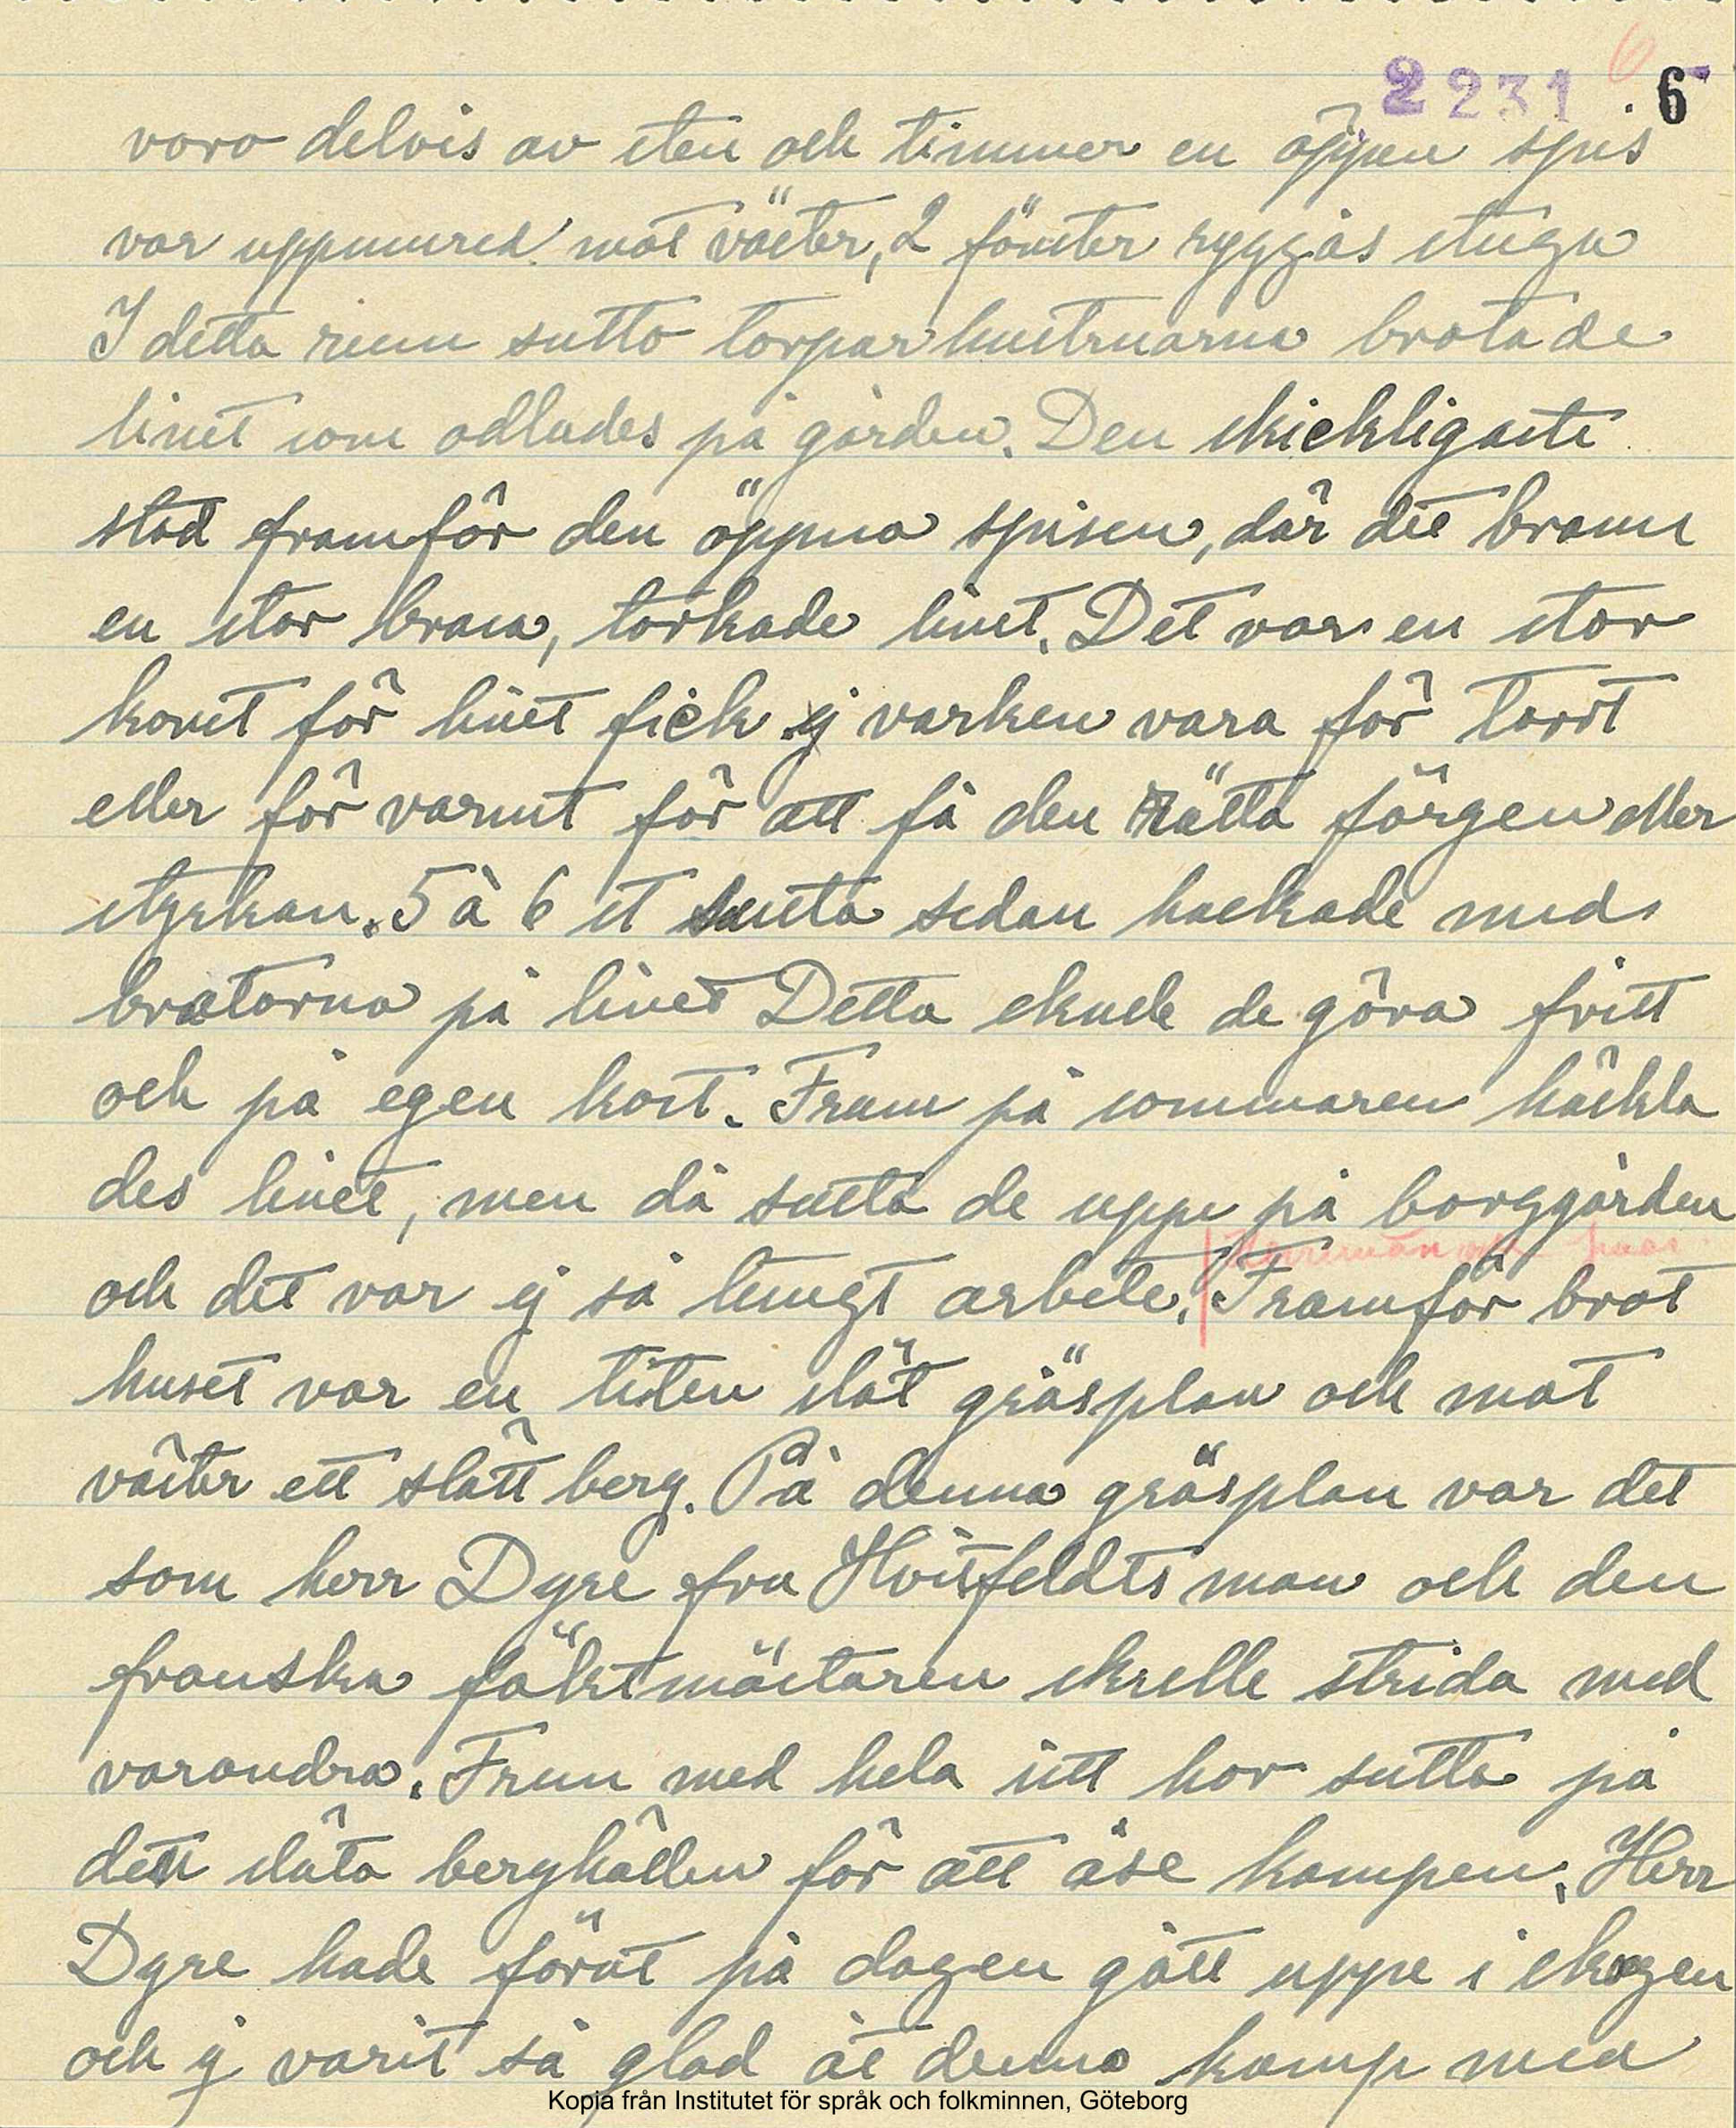 2231 6 6
voro delvis av sten och timmer en öppen spis
var uppmurad mot väster, 2 fönster ryggås stuga
I detta rum sutto torparhustruarna brotade
linet som odlades på gården. Den skickligaste
stod framför den öppna spisen, där det brann
en stor brasa, torkade linet. Det var en stor
konst för linet fick ej varken vara för torrt
eller för varmt för att få den rätta färgen eller
styrkan. 5 à 6 st sutto sedan hackade med
brotorna på linet Detta skulle de göra fritt
och på egen kost. Fram på sommaren häckla
des linet, men då sutto de uppe på borggården
och det var ej så tungt arbete. Framför brot
huset var en liten slät gräsplan och mot
väster ett slätt berg. På denna gräsplan var det
som herr Dyre fru Hvitfeldts man och den
franska fäktmästaren skulle strida med
varandra. Frun med hela sitt hov sutto på
den släta berghällen för att åse kampen. Herr
Dyre hade förut på dagen gått uppe i skogen
och ej varit så glad åt denna kamp med
Kopia från Institutet för språk och folkminnen, Göteborg